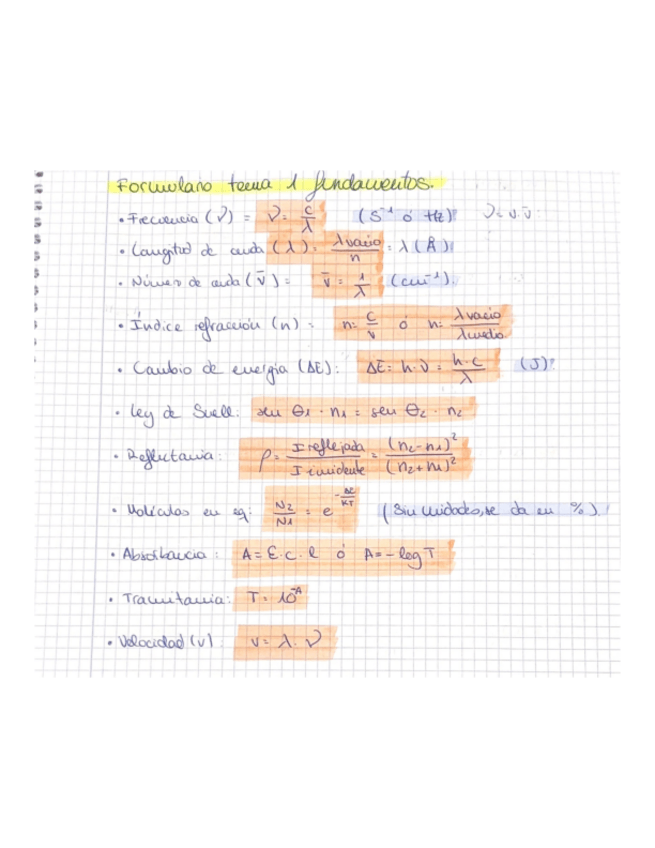 Formulario tema 1 fundamentos.
• Frecuencia (ν) = ν = c/λ (s⁻¹ ó Hz) ν = v·ν̄
• Longitud de onda (λ) = λvacio/n = λ (Å)
• Número de onda (ν̄) = ν̄ = 1/λ (cm⁻¹).
• Índice refracción (n) = n = c/v ó n = λvacio/λmedio
• Cambio de energía (ΔE): ΔE = h·ν = h·c/λ (J)
• Ley de Snell: sen θ1 · n1 = sen θ2 · n2
• Reflectancia: ρ = Ireflejada/Iincidente = (n2-n1)²/(n2+n1)²
• Moléculas en eq: N2/N1 = e^(-ΔE/KT) (Sin unidades, se da en %).
• Absorbancia: A = Ɛ·c·l ó A = -log T
• Transmitancia: T = 10^-A
• Velocidad (v): v = λ·ν